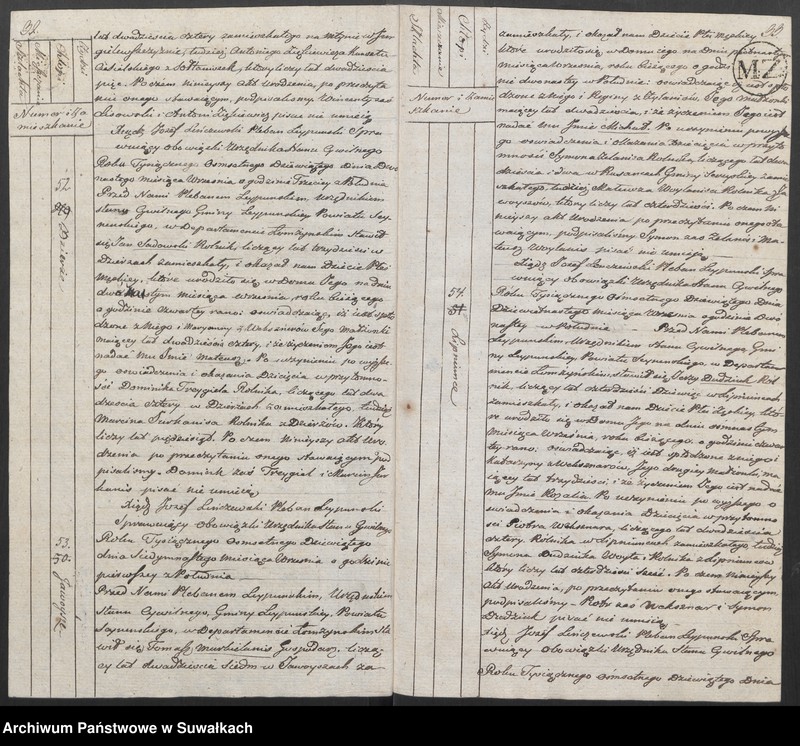 lat dwadzieścia cztery zamieszkały
pię. Po czem niniejszy Akt Urodzenia, po przeczyta
niu onego stawaiącym, podpisaliśmy
pisać nie umieią
Xiądz Józef Pleban Leypunski Spra
wuiący obowiązki Urzędnika Stanu Cywilnego
Roku Tysiącznego Osmsetnego Dziewiątego Dnia Dwu
nastego miesiąca Września o godzinie Trzeciey z Południa
Przed Nami Plebanem Leypunskim Urzędnikiem
Stanu Cywilnego Gminy Leypunskiey Powiatu Sey
nenskiego, w Departamencie Łomżynskim Stawił
się Jan Sadowski Rolnik liczący lat trzydzieści w
Dzierzach zamieszkały, i okazał nam Dziecie Płci
Męzkiey, które urodziło się w Domu Jego na dniu
dwunastym miesiąca Września, roku bieżącego
o godzinie czwartey rano; oswiadczaiąc, iż iest spło
dzone z niego i Maryanny z Jego małżonki
maiący lat dwadzieścia cztery, i że życzeniem Jego iest
nadać Mu Jmie Mateusz. Po uczynieniu powyższe
go oswiadczenia i okazania Dziecięcia w przytomno
ści Dominika Trzygiela Rolnika, liczącego lat dwa
dzieścia cztery w Dzierzach zamieszkałego, tudzież
Marcina Rolnika z Dzierzów, który
liczy lat pięćdziesiąt. Po czem Niniejszy Akt Uro
dzenia po przeczytaniu onego stawaiącym, pod
pisaliśmy. Dominik zaś Trzygiel i Marcin
pisać nie umieią
Xiądz Józef Pleban Leypunski
Sprawuiący Obowiązki Urzędnika Stanu Cywilnego
Roku Tysiącznego Osmsetnego Dziewiątego
dnia Siedymnastego Miesiąca Września o godzinie
pierwszey z Południa
Przed Nami Plebanem Leypunskim, Urzędnikiem
Stanu Cywilnego, Gminy Leypunskiey, Powiatu
Seynenskiego, w Departamencie Łomżynskim Sta
wił się Tomasz Gospodarz, liczą
cy lat dwadzieścia siedm w Jawoyszach za
52.
Dzierzie
53.
50.
Jawoysze
Numer i Za
mieszkanie
mieszkały, i okazał nam Dziecie Płci męzkiey
które urodziło się w Domu Jego na Dniu
miesiąca Września, roku bieżącego o godzi
nie dwunastey w Południe; oswiadczaiąc iż iest spło
dzone z niego i Reginy z Jego małżonki
maiący lat dwadzieścia, i że życzeniem Jego iest
nadać Mu Jmie Michał. Po uczynieniu powyższe
go oswiadczenia i okazania Dziecięcia w przyto
mności Szymona Rolnika, liczącego lat dwa
dzieścia i dwa w Kusańcach Gminy zamie
szkałego, tudzież Mateusza Rolnika z Ja
woyszów, który liczy lat czterdzieści. Po czem Ni
nieyszy akt Urodzenia po przeczytaniu onego sta
waiącym, podpisaliśmy Szymon zaś i Ma
teusz pisać nie umieią
Xiądz Józef Pleban Leypunski Spra
wuiący obowiązki Urzędnika Stanu Cywilnego
Roku Tysiącznego Osmsetnego Dziewiątego Dnia
Dziewiętnastego Miesiąca Września o godzinie Dwu
nastey w Południe Przed Nami Plebanem
Leypunskim Urzędnikiem Stanu Cywilnego Gmi
ny Leypunskiey Powiatu Seynenskiego, w Departa
mencie Łomżynskim, stawił się Jerzy Dudziuk Rol
nik, liczący lat czterdzieści Dziewięć w Lipniuncach
zamieszkały, i okazał nam Dziecie Płci Żeńskiey, któ
re urodziło się w Domu Jego na dniu osmnastym
Miesiąca Września, roku bieżącego, o godzinie czwar
tey rano; oswiadczaiąc, iż iest spłodzone z niego i
Katarzyny z Weksnarów, Jego drugiey małżonki, ma
iący lat trzydzieści, i że życzeniem Jego iest nadać
Mu Jmie Rozalia. Po uczynieniu powyższego o
świadczenia i okazania Dziecięcia w przytomno
ści Piotra Weksnara, liczącego lat dwadzieścia
cztery, Rolnika w Lipniuncach zamieszkałego, tudzież
Szymona Dudziuka Woyta i Rolnika z Lipniunców
który liczy lat czterdzieści sześć. Po czem niniejszy
Akt Urodzenia, po przeczytaniu onego stawaiącym,
podpisaliśmy. Piotr zaś Weksznar i Szymon
Dudziuk pisać nie umieią
Xiądz Józef Pleban Leypunski Spra
wuiący Obowiązki Urzędnika Stanu Cywilnego
Roku Tysiącznego Osmsetnego Dziewiątego Dnia
54.
Lipniunce
Numer i Zamie
szkanie
MZ
Archiwum Państwowe w Suwałkach